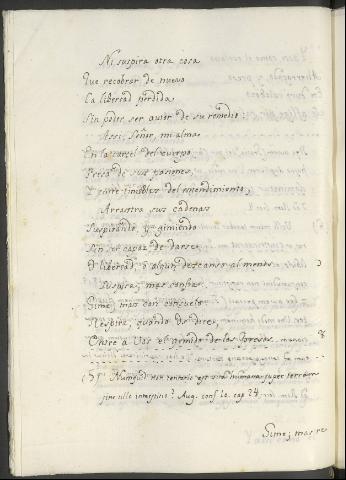 Ni suspira otra cosa
Que recobrar de nuevo
La libertad perdida
Sin poder ser autor de su remedio
Assi, Señor, mi alma
En la carcel del cuerpo
Presa de sus pasiones,
del entendimiento,
Arrastra sus cadenas
Suspirando, y gimiendo
Sin ser capaz de darse
libertad, ó algun descanso al menos
Suspira; mas confia.
Gime, mas con consuelo
Respira, quando Vos dices,
Entre a Vos el gemido de los
(5) Numquid non tentatio est vita humana super terram
sine ullo interstitio? Aug. conf. lo. cap. 24
Gime; mas